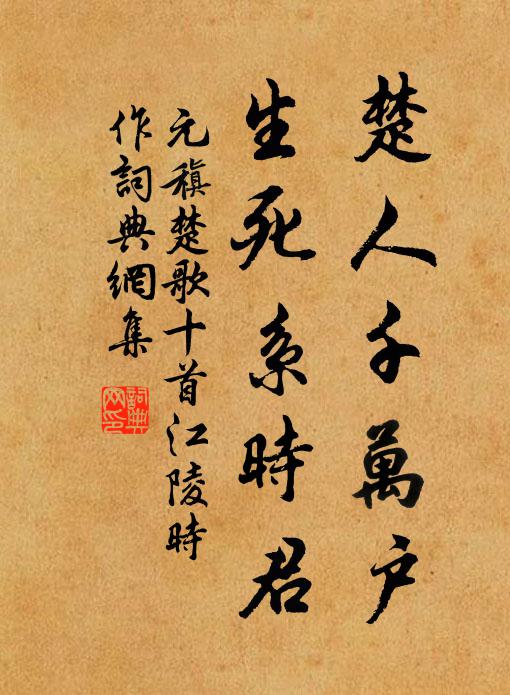 楚人千萬户
生死系時君
元稹楚歌十首江陵時
作詞典網集
詞典網印